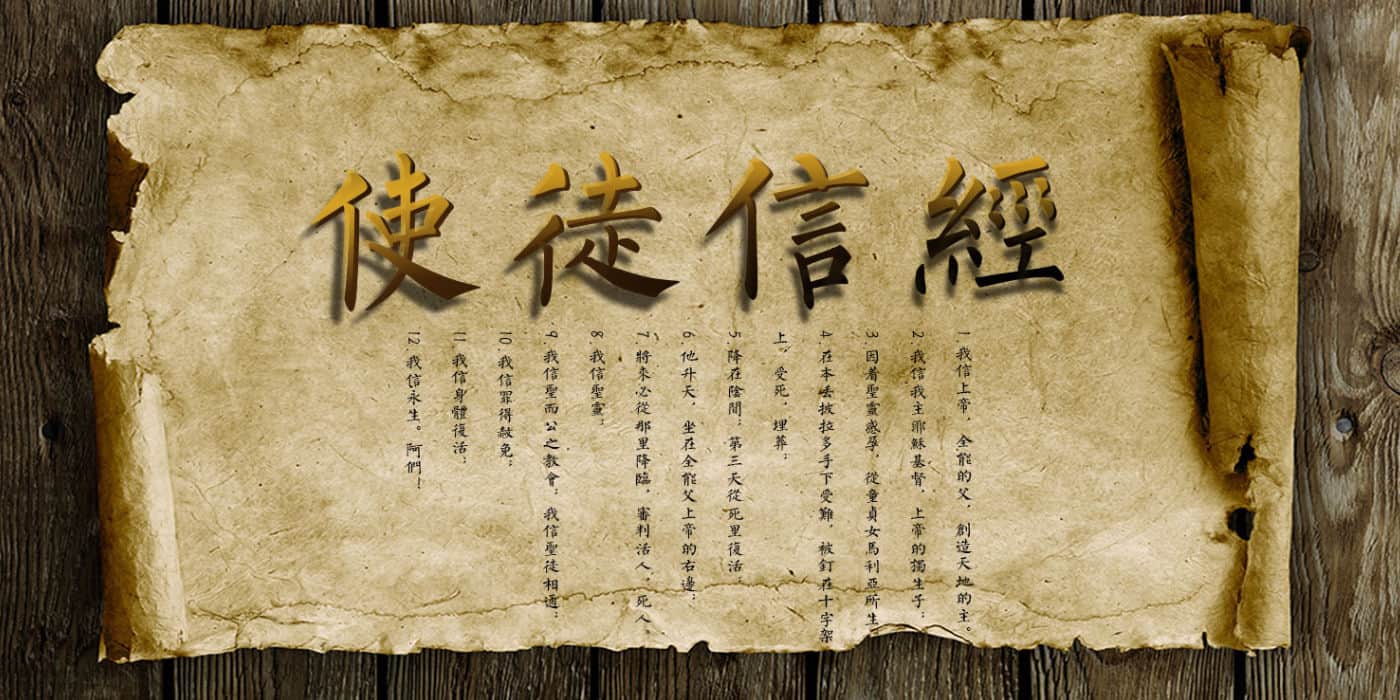 使徒信經
1.我信上帝，全能的父，創造天地的主。
2.我信我主耶穌基督，上帝的獨生子；
3.因着聖靈感孕，從童貞女馬利亞所生
4.在本丟彼拉多手下受難，被釘在十字架
上，受死，埋葬；
5.降在陰間；第三天從死里復活；
6.他升天，坐在全能父上帝的右邊；
7.將來必從那里降臨，審判活人，死人。
8.我信聖靈；
9.我信聖而公之教會；我信聖徒相通；
10.我信罪得赦免；
11.我信身體復活；
12.我信永生。阿們！